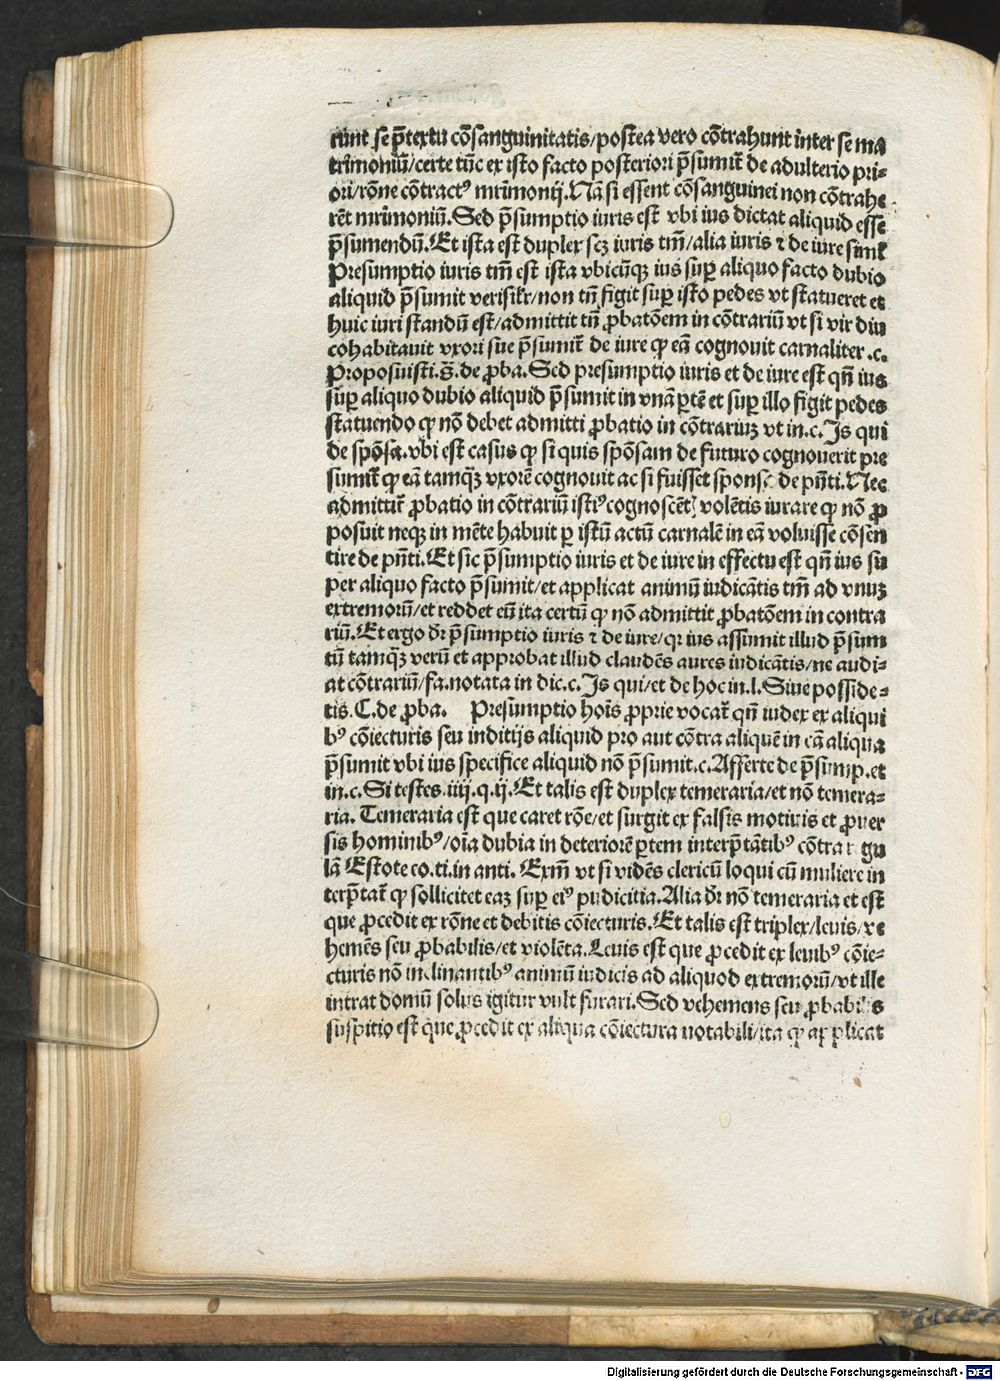 runt se p̄textu cōsanguinitatis/postea vero cōtrahunt inter se ma
trimoniū/certe tūc ex isto facto posteriori p̄sumit̄ de adulterio pri⸗
ori/rōne cōtractꝰ mr̄imonij. Nā si essent cōsanguinei non cōtrahe
rēt mr̄imoniū. Sed p̄sumptio iuris est vbi ius dictat aliquid esse
p̄sumendū. Et ista est duplex scꝫ iuris tm̄/alia iuris ⁊ de iure siml̄
Presumptio iuris tm̄ est ista vbicūqꝫ ius suꝑ aliquo facto dubio
aliquid p̄sumit verisilr̄/non tn̄ figit suꝑ isto pedes vt statueret et
huic iuri standū est/admittit tn̄ ꝓbatōem in cōtrariū vt si vir diu
cohabitauit vxori sue p̄sumit̄ de iure ꝙ eā cognouit carnaliter .c.
Proposuisti.§. de ꝓba. Sed presumptio iuris et de iure est qn̄ ius
suꝑ aliquo dubio aliquid p̄sumit in vnā ꝑtē et suꝑ illo figit pedes
statuendo ꝙ nō debet admitti ꝓbatio in cōtrariuꝫ vt in.c. Is qui
de spōsa. vbi est casus ꝙ si quis spōsam de futuro cognouerit pre
sumit̄ ꝙ eā tamqꝫ̄ vxorē cognouit ac si fuisset sponse de pn̄ti. Nec
admittit̄ ꝓbatio in cōtrariū istiꝰ cognoscēt̄ volētis iurare ꝙ nō ꝓ
posuit neqꝫ in mēte habuit ꝑ istū actū carnalē in eā voluisse cōsen
tire de pn̄ti. Et sic p̄sumptio iuris et de iure in effectu est qn̄ ius su
per aliquo facto p̄sumit/et applicat animū iudicātis tm̄ ad vnuꝫ
extremorū/et reddet eū ita certū ꝙ nō admittit ꝓbatōem in contra
riū. Et ergo dr̄ p̄sumptio iuris ⁊ de iure/qꝛ ius assumit illud p̄sum
tū tamqꝫ̄ verū et approbat illud claudēs aures iudicātis/ne audi⸗
at cōtrariū/fa.notata in dic.c. Is qui/et de hoc in.l. Siue posside⸗
tis. C. de ꝓba. Presumptio hoīs ꝓprie vocat̄ qn̄ iudex ex aliqui
bꝰ cōiecturis seu inditijs aliquid pro aut cōtra aliquē in cā aliqua
p̄sumit vbi ius specifice aliquid nō p̄sumit.c. Afferte de p̄sump.et
in.c. Si testes.iiij.q.ij. Et talis est duplex temeraria/et nō temera⸗
ria. Temeraria est que caret rōe/et surgit ex falsis motiuis et ꝓuer
sis hominibꝰ/oīa dubia in deteriorē ꝑtem interp̄tātibꝰ cōtra regu
lā Estote co.ti.in anti. Exm̄ vt si vidēs clericū loqui cū muliere in
terp̄tat̄ ꝙ sollicitet eaꝫ suꝑ eiꝰ pudicitia. Alia dr̄ nō temeraria et est
que ꝓcedit ex rōne et debitis cōiecturis. Et talis est triplex/leuis/ve
hemēs seu ꝓbabilis/et violēta. Leuis est que ꝓcedit ex leuibꝰ cōie⸗
cturis nō inclinantibꝰ animū iudicis ad aliquod extremorū/vt ille
intrat domū solus igitur vult furari. Sed vehemens seu ꝓbabilis
suspitio est que ꝓcedit ex aliqua cōiectura notabili/ita ꝙ applicat
Digitalisierung gefördert durch die Deutsche Forschungsgemeinschaft · DFG